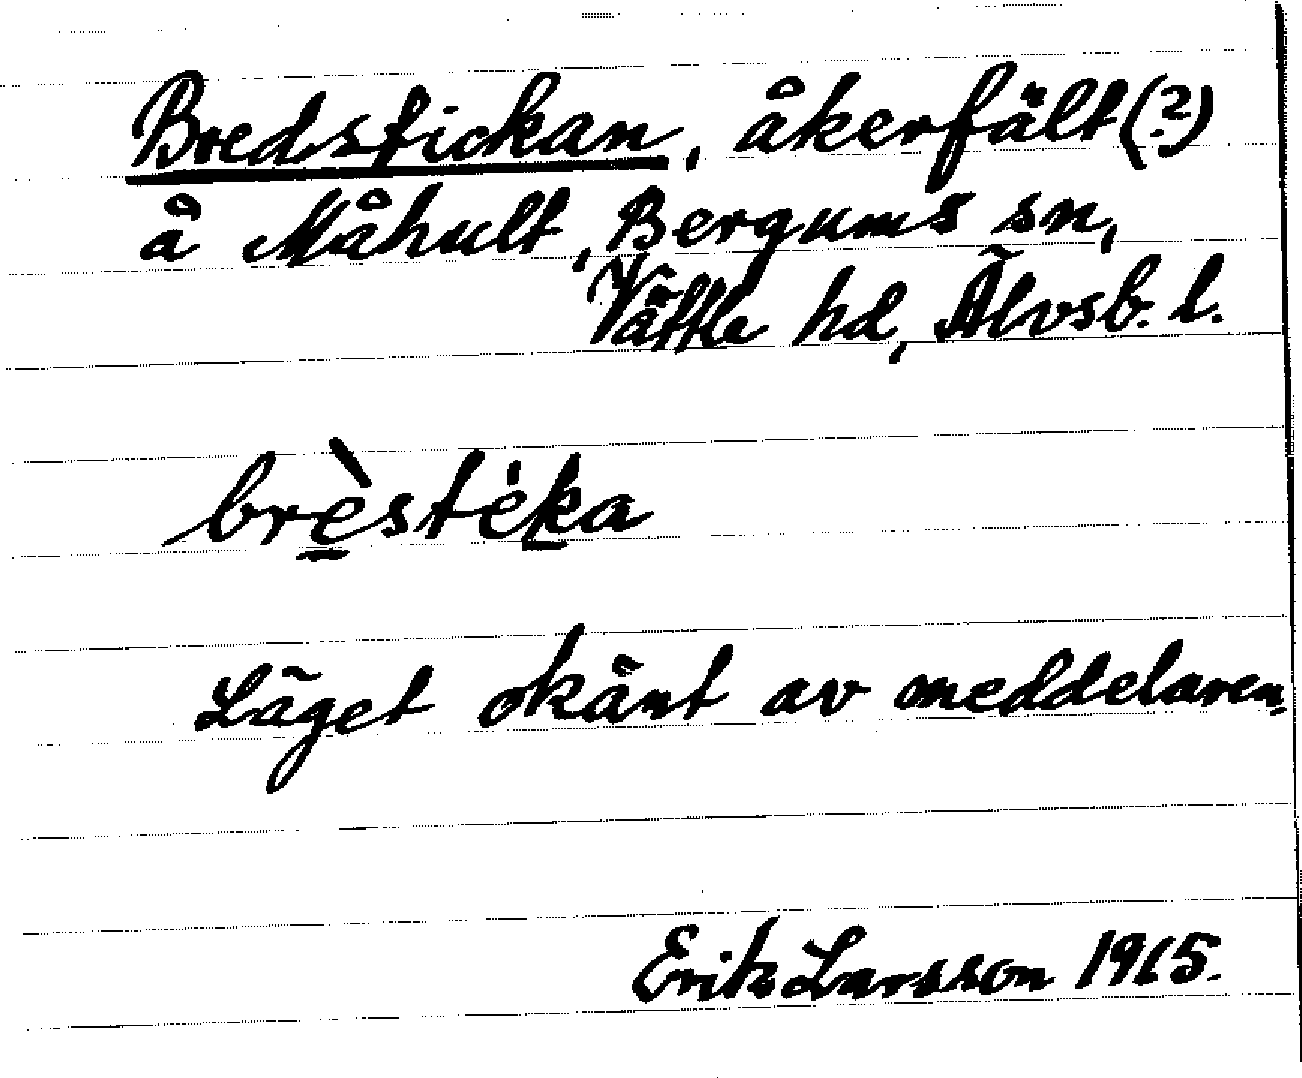 Bredstickan, åkerfält(?)
å Måhult, Bergums sn,
Vättle hd, Älvsb. l.
brèstėka
Läget okänt av meddelaren.
Erik Larsson 1965.